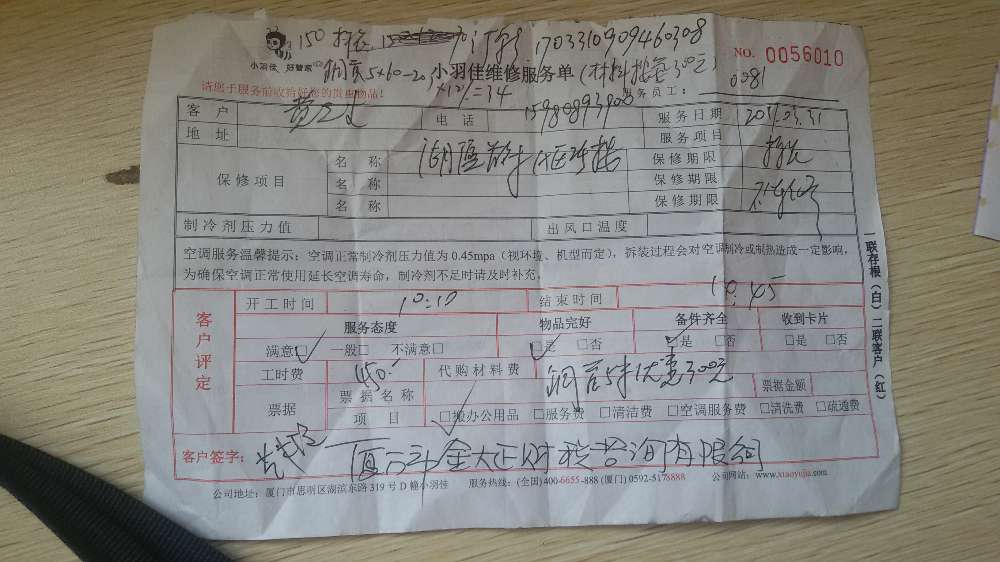 150 1703310909460308
小羽佳 好管家
NO. 0056010
小羽佳维修服务单(材料 300元)
请您于服务前收拾好您的贵重物品!
铜管5×60-20
×12%=34
服务员工: 0081
客户 电话 服务日期
地址 服务项目
保修项目 名称 保修期限
名称 保修期限
名称 保修期限
制冷剂压力值 出风口温度
空调服务温馨提示:空调正常制冷剂压力值为 0.45mpa(视环境、机型而定),拆装过程会对空调制冷或制热造成一定影响,
为确保空调正常使用延长空调寿命,制冷剂不足时请及时补充。
客户评定
开工时间 10:10 结束时间 10:45
服务态度 物品完好 备件齐全 收到卡片
满意□ 一般□ 不满意□ □是 □否 □是 □否 □是 □否
工时费 450.- 代购材料费 铜管5米优惠300元
票据 票据名称 票据金额
项目 □搬办公用品 □服务费 □清洁费 □空调服务费 □清洗费 □疏通费
客户签字: 厦门金大正财税咨询有限公司
公司地址:厦门市思明区湖滨东路 319 号 D 幢小羽佳 服务热线:(全国)400-6655-888 (厦门) 0592-5178888 公司网站:www.xiaoyujia.com
一联存根(白) 二联客户(红)